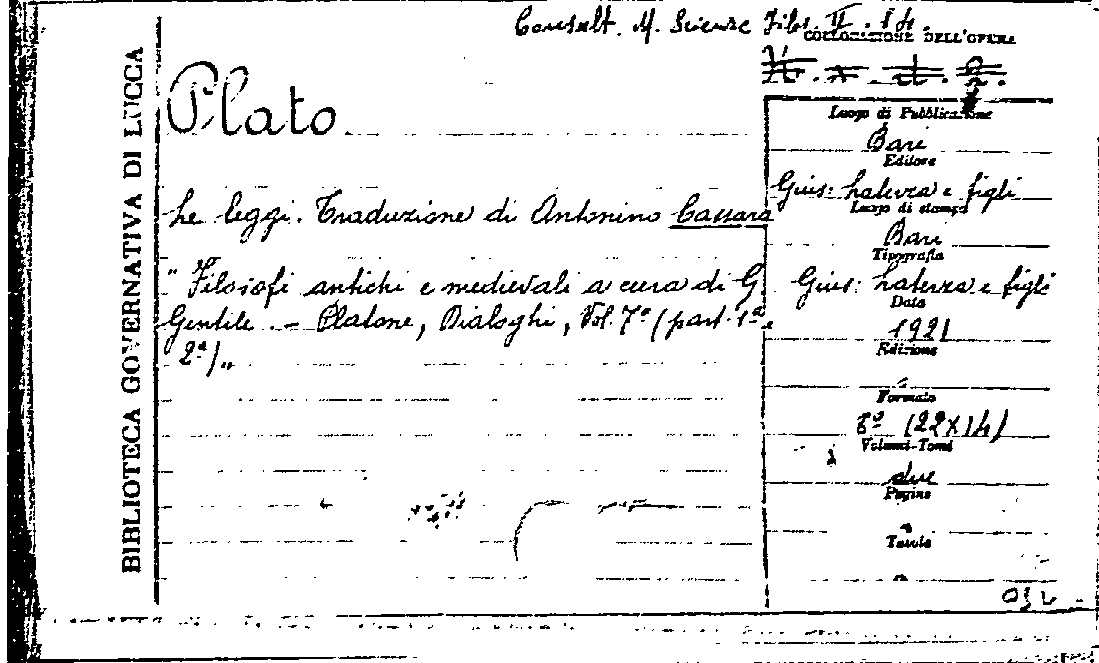 Consult. M. Scienze Filos. II. 14.
COLLOCAZIONE DELL'OPERA
BIBLIOTECA GOVERNATIVA DI LUCCA
Plato
Le leggi. Traduzione di Antonino Cassarà
"Filosofi antichi e medievali a cura di G.
Gentile. – Platone, Dialoghi, Vol. 7º (part. 1ª e
2ª)„
Luogo di Pubblicazione
Bari
Editore
Gius: Laterza e figli
Luogo di stampa
Bari
Tipografia
Gius: Laterza e figli
Data
1921
Edizione
Formato
8º (22x14)
Volumi-Tomi
due
Pagine
Tavole